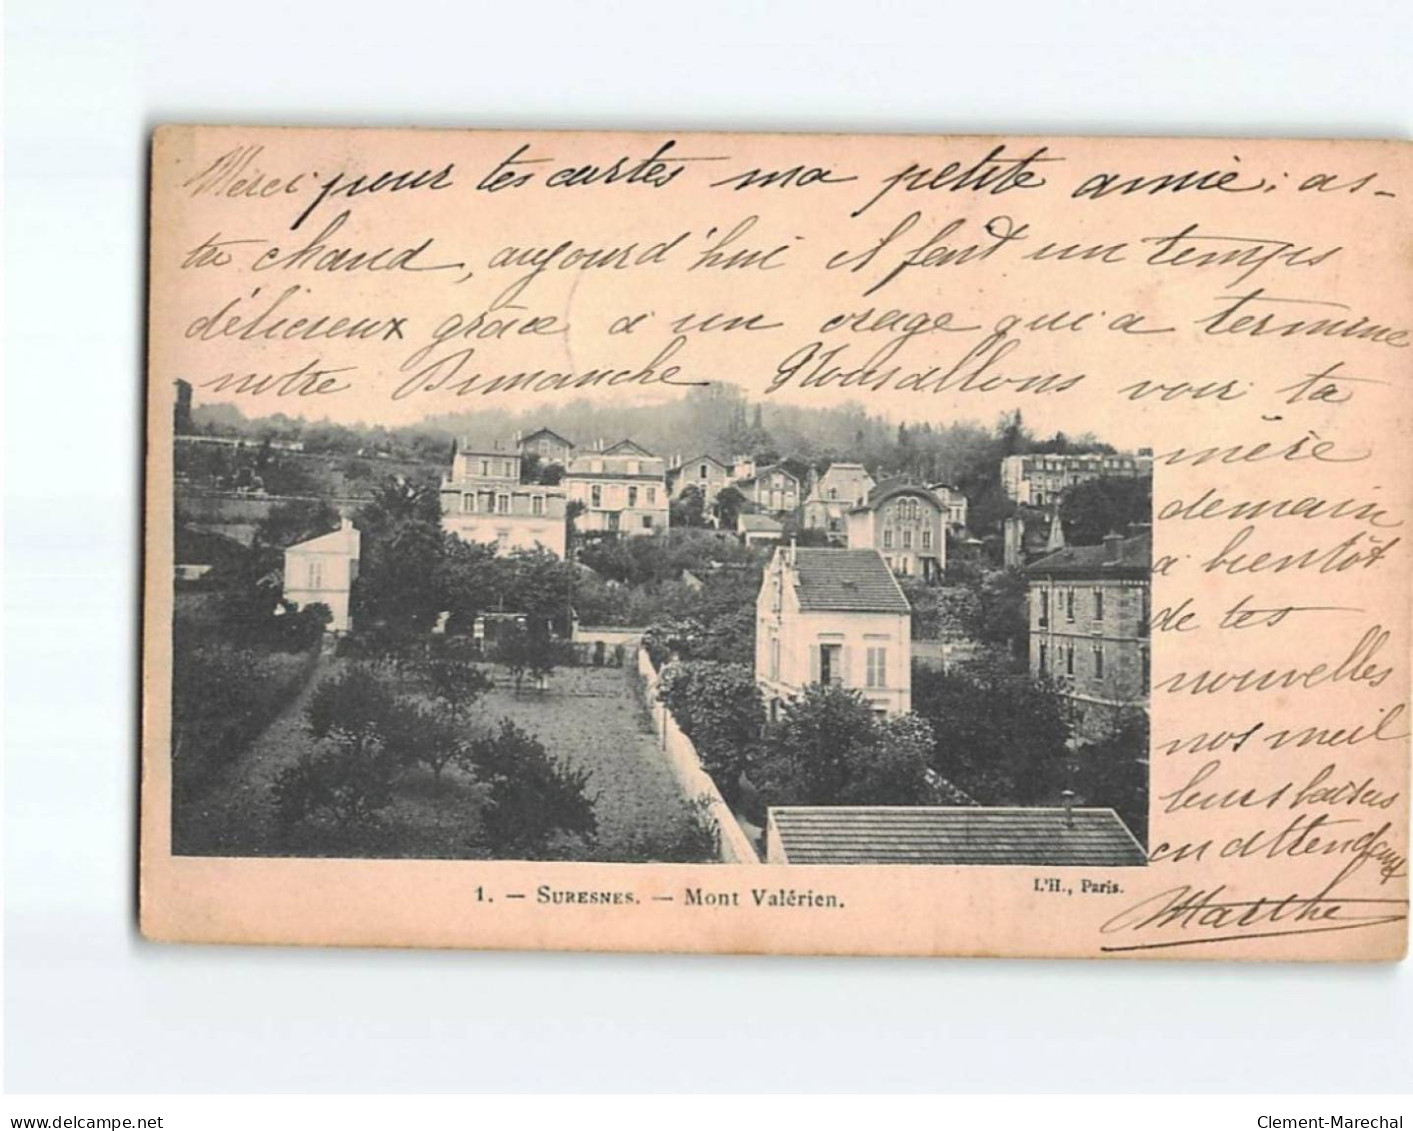 Merci pour tes cartes ma petite amie; as-
tu chaud, aujourd'hui il fait un temps
délicieux grâce à un orage qui a terminé
notre Dimanche Nous allons voir ta
mère
demain
à bientôt
de tes
nouvelles
nos meil
leurs baisers
en attendant
Marthe
1. — SURESNES. — Mont Valérien.
L'H., Paris.
www.delcampe.net
Clement-Marechal